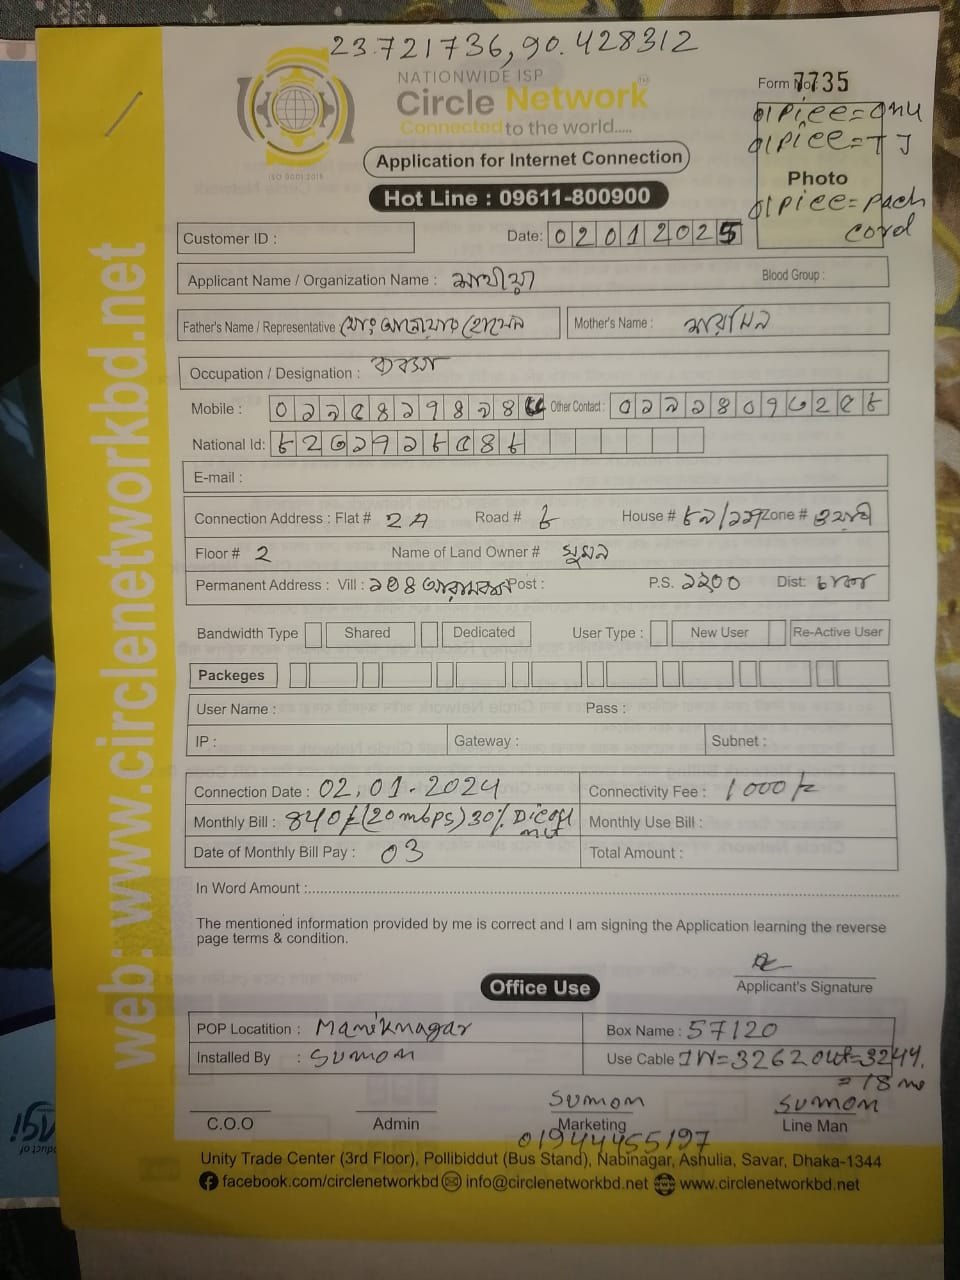 23.721736, 90.428312
NATIONWIDE ISP
Circle Network
Connected to the world.....
ISO 9001:2015
Form No: 7735
01 Piece = onu
01 Piece = TJ
Photo
01 Piece = pach cord
Application for Internet Connection
Hot Line : 09611-800900
Customer ID :
Date: 02012025
Applicant Name / Organization Name :
Blood Group :
Father's Name / Representative মোঃ হোসেন
Mother's Name :
Occupation / Designation :
Mobile : ০১১৫৪১৭৪১৪
Other Contact :
National Id:
E-mail :
Connection Address : Flat # 2A Road # ৮ House # Zone # ওয়ারী
Floor # 2 Name of Land Owner # সুমন
Permanent Address : Vill : Post : P.S. ১২০০ Dist: ঢাকা
Bandwidth Type Shared Dedicated User Type : New User Re-Active User
Packeges
User Name : Pass :
IP : Gateway : Subnet :
Connection Date : 02.01.2024 Connectivity Fee : 1000/=
Monthly Bill : 840/=(20mbps) 30% Monthly Use Bill :
Date of Monthly Bill Pay : 03 Total Amount :
In Word Amount :
The mentioned information provided by me is correct and I am signing the Application learning the reverse
page terms & condition.
Applicant's Signature
Office Use
POP Locatition : Maniknagar Box Name : 57120
Installed By : Sumon Use Cable IN=3262 out=3244.
= 18 m
Sumon Sumon
C.O.O Admin Marketing Line Man
01944455197
Unity Trade Center (3rd Floor), Pollibiddut (Bus Stand), Nabinagar, Ashulia, Savar, Dhaka-1344
facebook.com/circlenetworkbd info@circlenetworkbd.net www.circlenetworkbd.net
web: www.circlenetworkbd.net